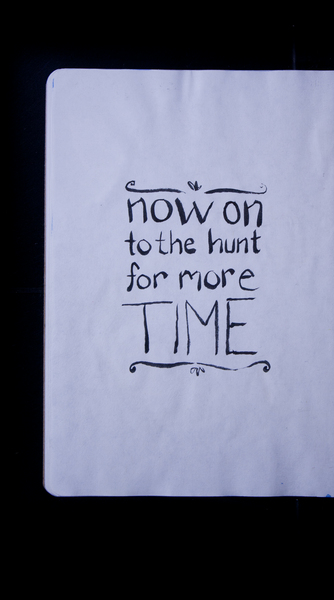 now on
to the hunt
for more
TIME